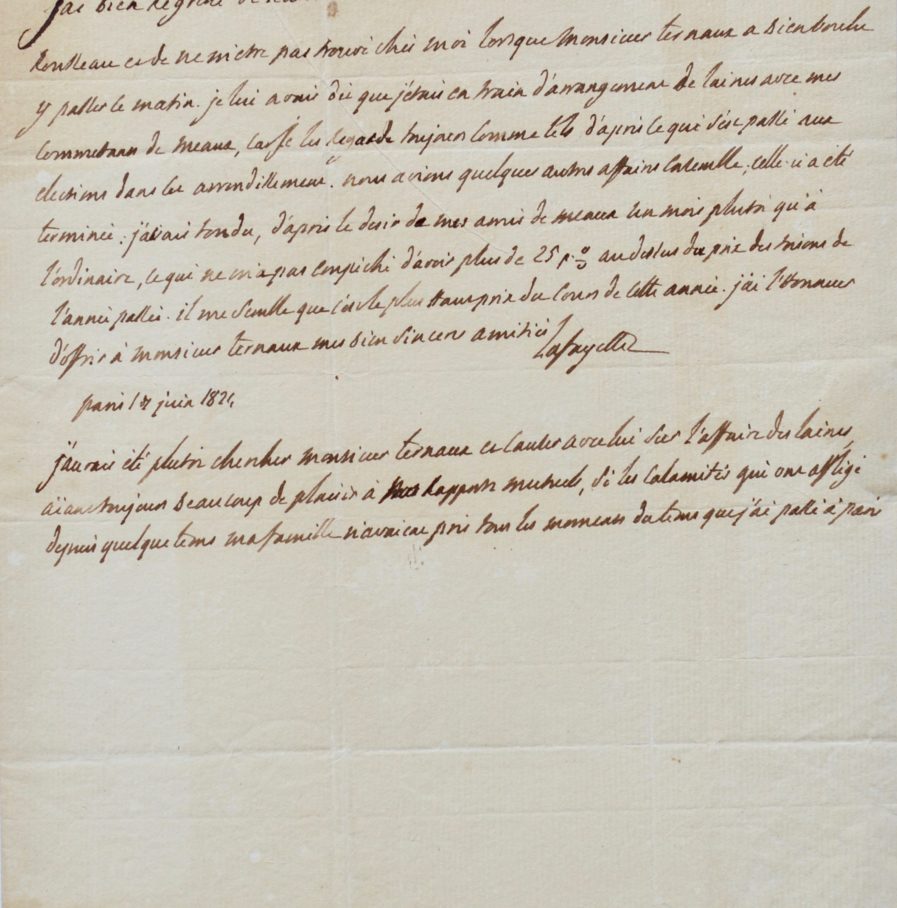 j'ai bien regretté de
Rousseau et de ne m'etre pas trouvé chés moi lorsque Monsieur ternaux a bien voulu
y passer le matin. je lui avois dit que j'étais en train d'arrangement de laines avec mes
commettans de meaux, car je les Regarde toujours comme tels d'après ce qui s'est passé aux
elections dans les arrondissemens. nous avions quelques autres affaires ensemble, celle-ci a été
terminée; j'avais tondu, d'après le desir de mes amis de meaux un mois plutot qu'à
l'ordinaire, ce qui ne m'a pas empêché d'avoir plus de 25 p.% au dessus du prix des toisons de
l'année passée. il me semble que c'est le plus haut prix du cours de cette année. j'ai l'honneur
d'offrir à monsieur ternaux mes bien sinceres amitiés
Lafayette
paris 17 juin 1824
j'aurais été plutot chercher monsieur ternaux et causer avec lui sur l'affaire des laines,
aiant toujours beaucoup de plaisir à nos Rapports mutuels, si les calamités qui ont affligé
depuis quelque tems ma famille n'avaient pris tous les momens du tems que j'ai passé à paris